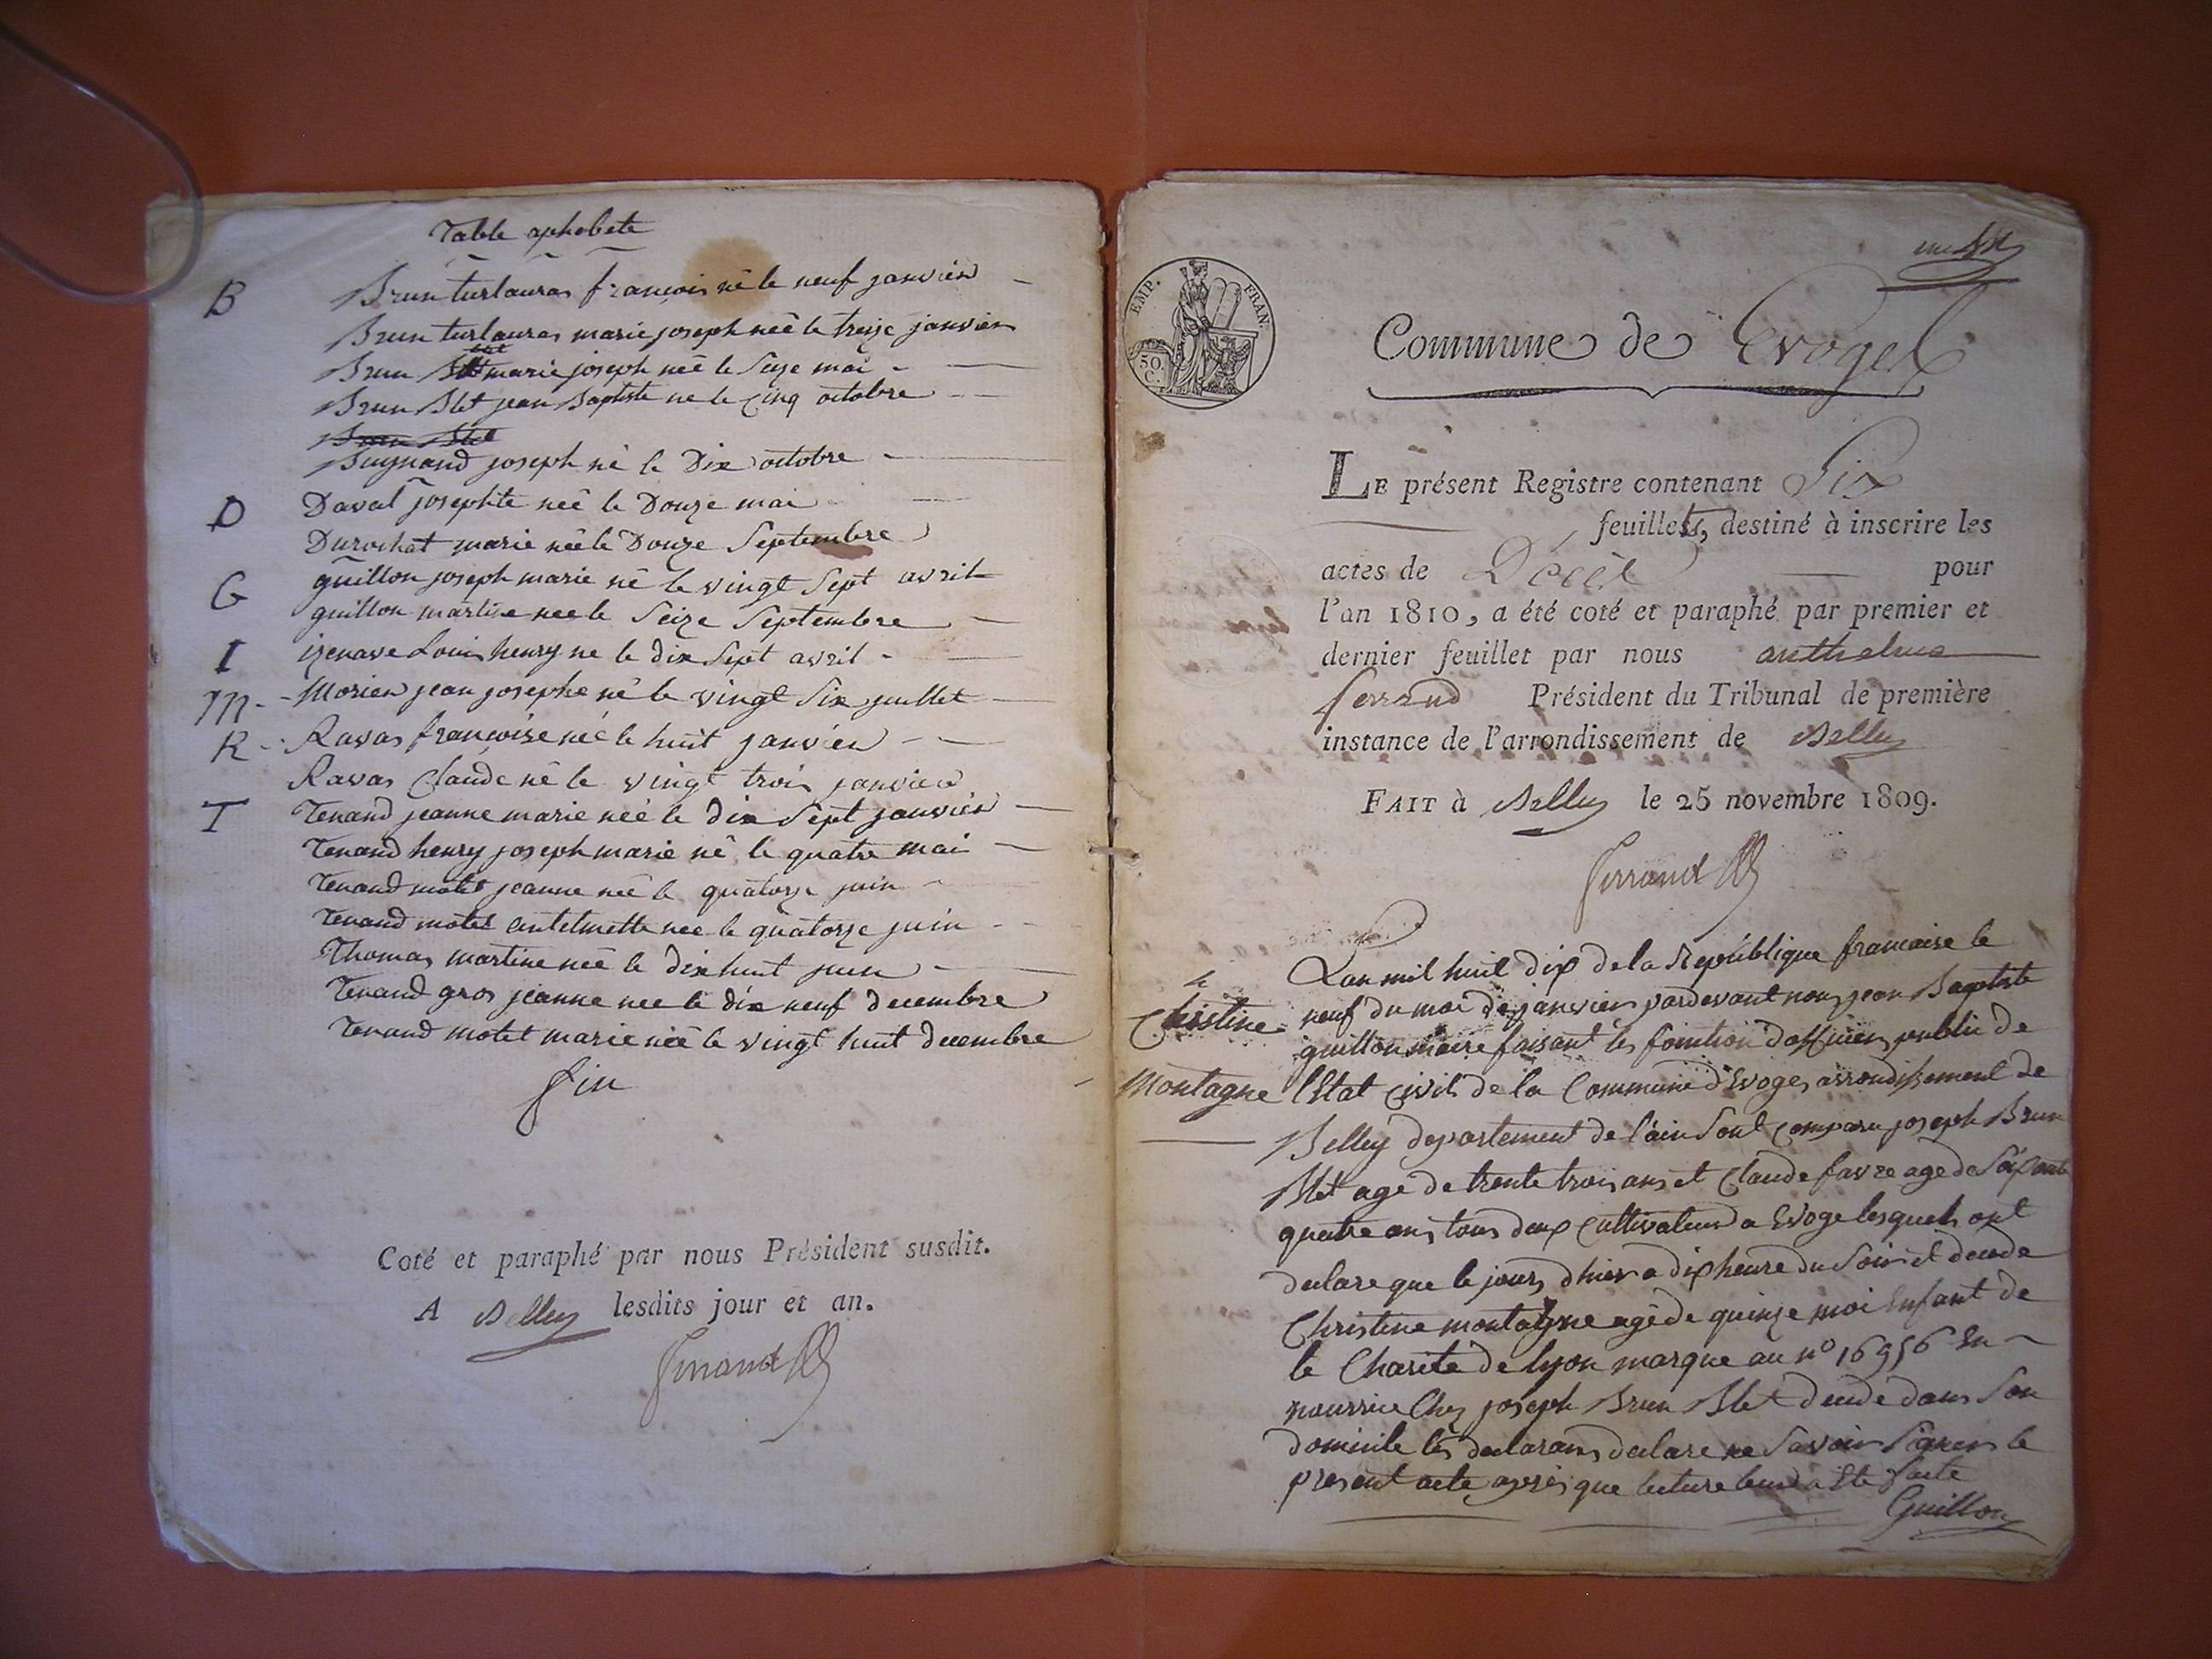 Table aphabete
B
Brun turlauras francois né le neuf janvier
Brun turlauras marie joseph neé le treize janvier
Brun Blet marie joseph neé le Seize mai
Brun Blet jean Baptiste ne le cinq octobre
Brun Blet
Buynand joseph né le Dix octobre
D
Daval josephte neé le Douze mai
Durochat marie neé le Douze Septembre
G
guillon joseph marie né le vingt Sept avril
guillon martine nee le Seize Septembre
I
izenave Louis henry ne le dix Sept avril
M
Morier jean josephe né le vingt Six juillet
R
Ravas francoise neé le huit janvier
Ravas Claude né le vingt trois janvier
T
Tenand jeanne marie neé le dix Sept janvier
Tenand henry joseph marie né le quatre mai
Tenand motet jeanne neé le quatorze juin
Tenand motet antelmette nee le quatorze juin
Thomas martine neé le dix huit juin
Tenand gros jeanne nee le dix neuf decembre
Tenand motet marie neé le vingt huit decembre
fin
Coté et paraphé par nous Président susdit.
A Belley lesdits jour et an.
Ferrand
EMP. FRAN.
50. C.
Commune de Evoges
LE présent Registre contenant Six
feuillets, destiné à inscrire les
actes de Décès pour
l'an 1810, a été coté et paraphé par premier et
dernier feuillet par nous anthelme
ferrand Président du Tribunal de première
instance de l'arrondissement de Belley
FAIT à Belley le 25 novembre 1809.
Ferrand
Christine
Montagne
Lan mil huit dix de la Republique francaise le
neuf du moi de janvier pardevant nous jean Baptiste
guillon maire faisant les fonction dofficier public de
lEtat Civil de la Commune d'Evoges arrondissement de
Belley departement de l'ain Sont comparu joseph Brun
Blet agé de trente trois ans et Claude favre age de Soixante
quatre ans tous deux cultivateurs a Evoge lesquels ont
declare que le jours dhier a dix heure du Soir et decede
Christine montagne agé de quinze moi Enfant de
le Charité de lyon marque au n° 16956 En
nourrice Chez joseph Brun Blet decede dans Son
domicile les declarans declare ne Savoir Signer le
present acte apres que lecture leurs a Ete faite
Guillon